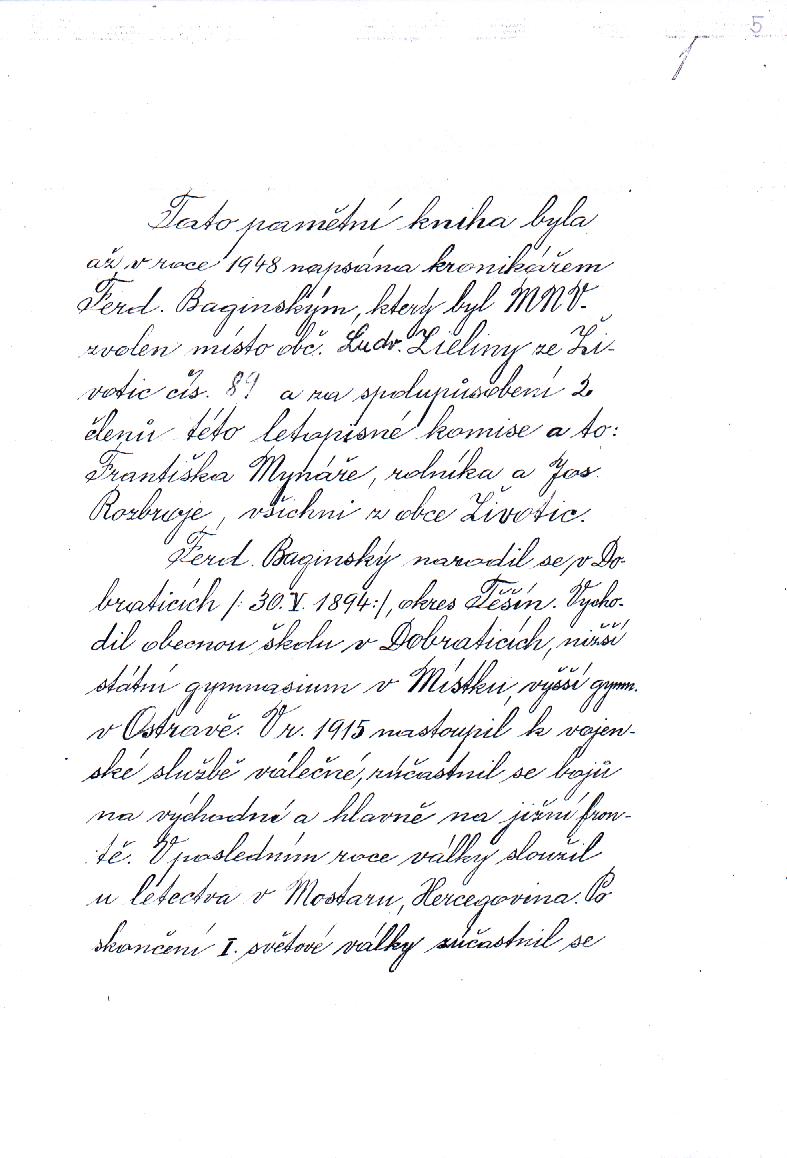 5
1
Tato pamětní kniha byla
až v roce 1948 napsána kronikářem
Ferd. Baginským, který byl MNV.
zvolen místo obč. Ludv. Zieliny ze Ži-
votic čís. 89 a za spolupůsobení 2
členů této letopisné komise a to:
Františka Mynáře, rolníka a Jos.
Rozbroje, všichni z obce Životic.
Ferd. Baginský narodil se v Do-
braticích /: 30. V. 1894:/, okres Těšín. Vycho-
dil obecnou školu v Dobraticích, nižší
státní gymnasium v Místku, vyšší gymn.
v Ostravě. V r. 1915 nastoupil k vojen-
ské službě válečné, zúčastnil se bojů
na východní a hlavně na jižní fron-
tě. V posledním roce války sloužil
u létectva v Mostaru, Hercegovina. Po
skončení I. světové války zúčastnil se